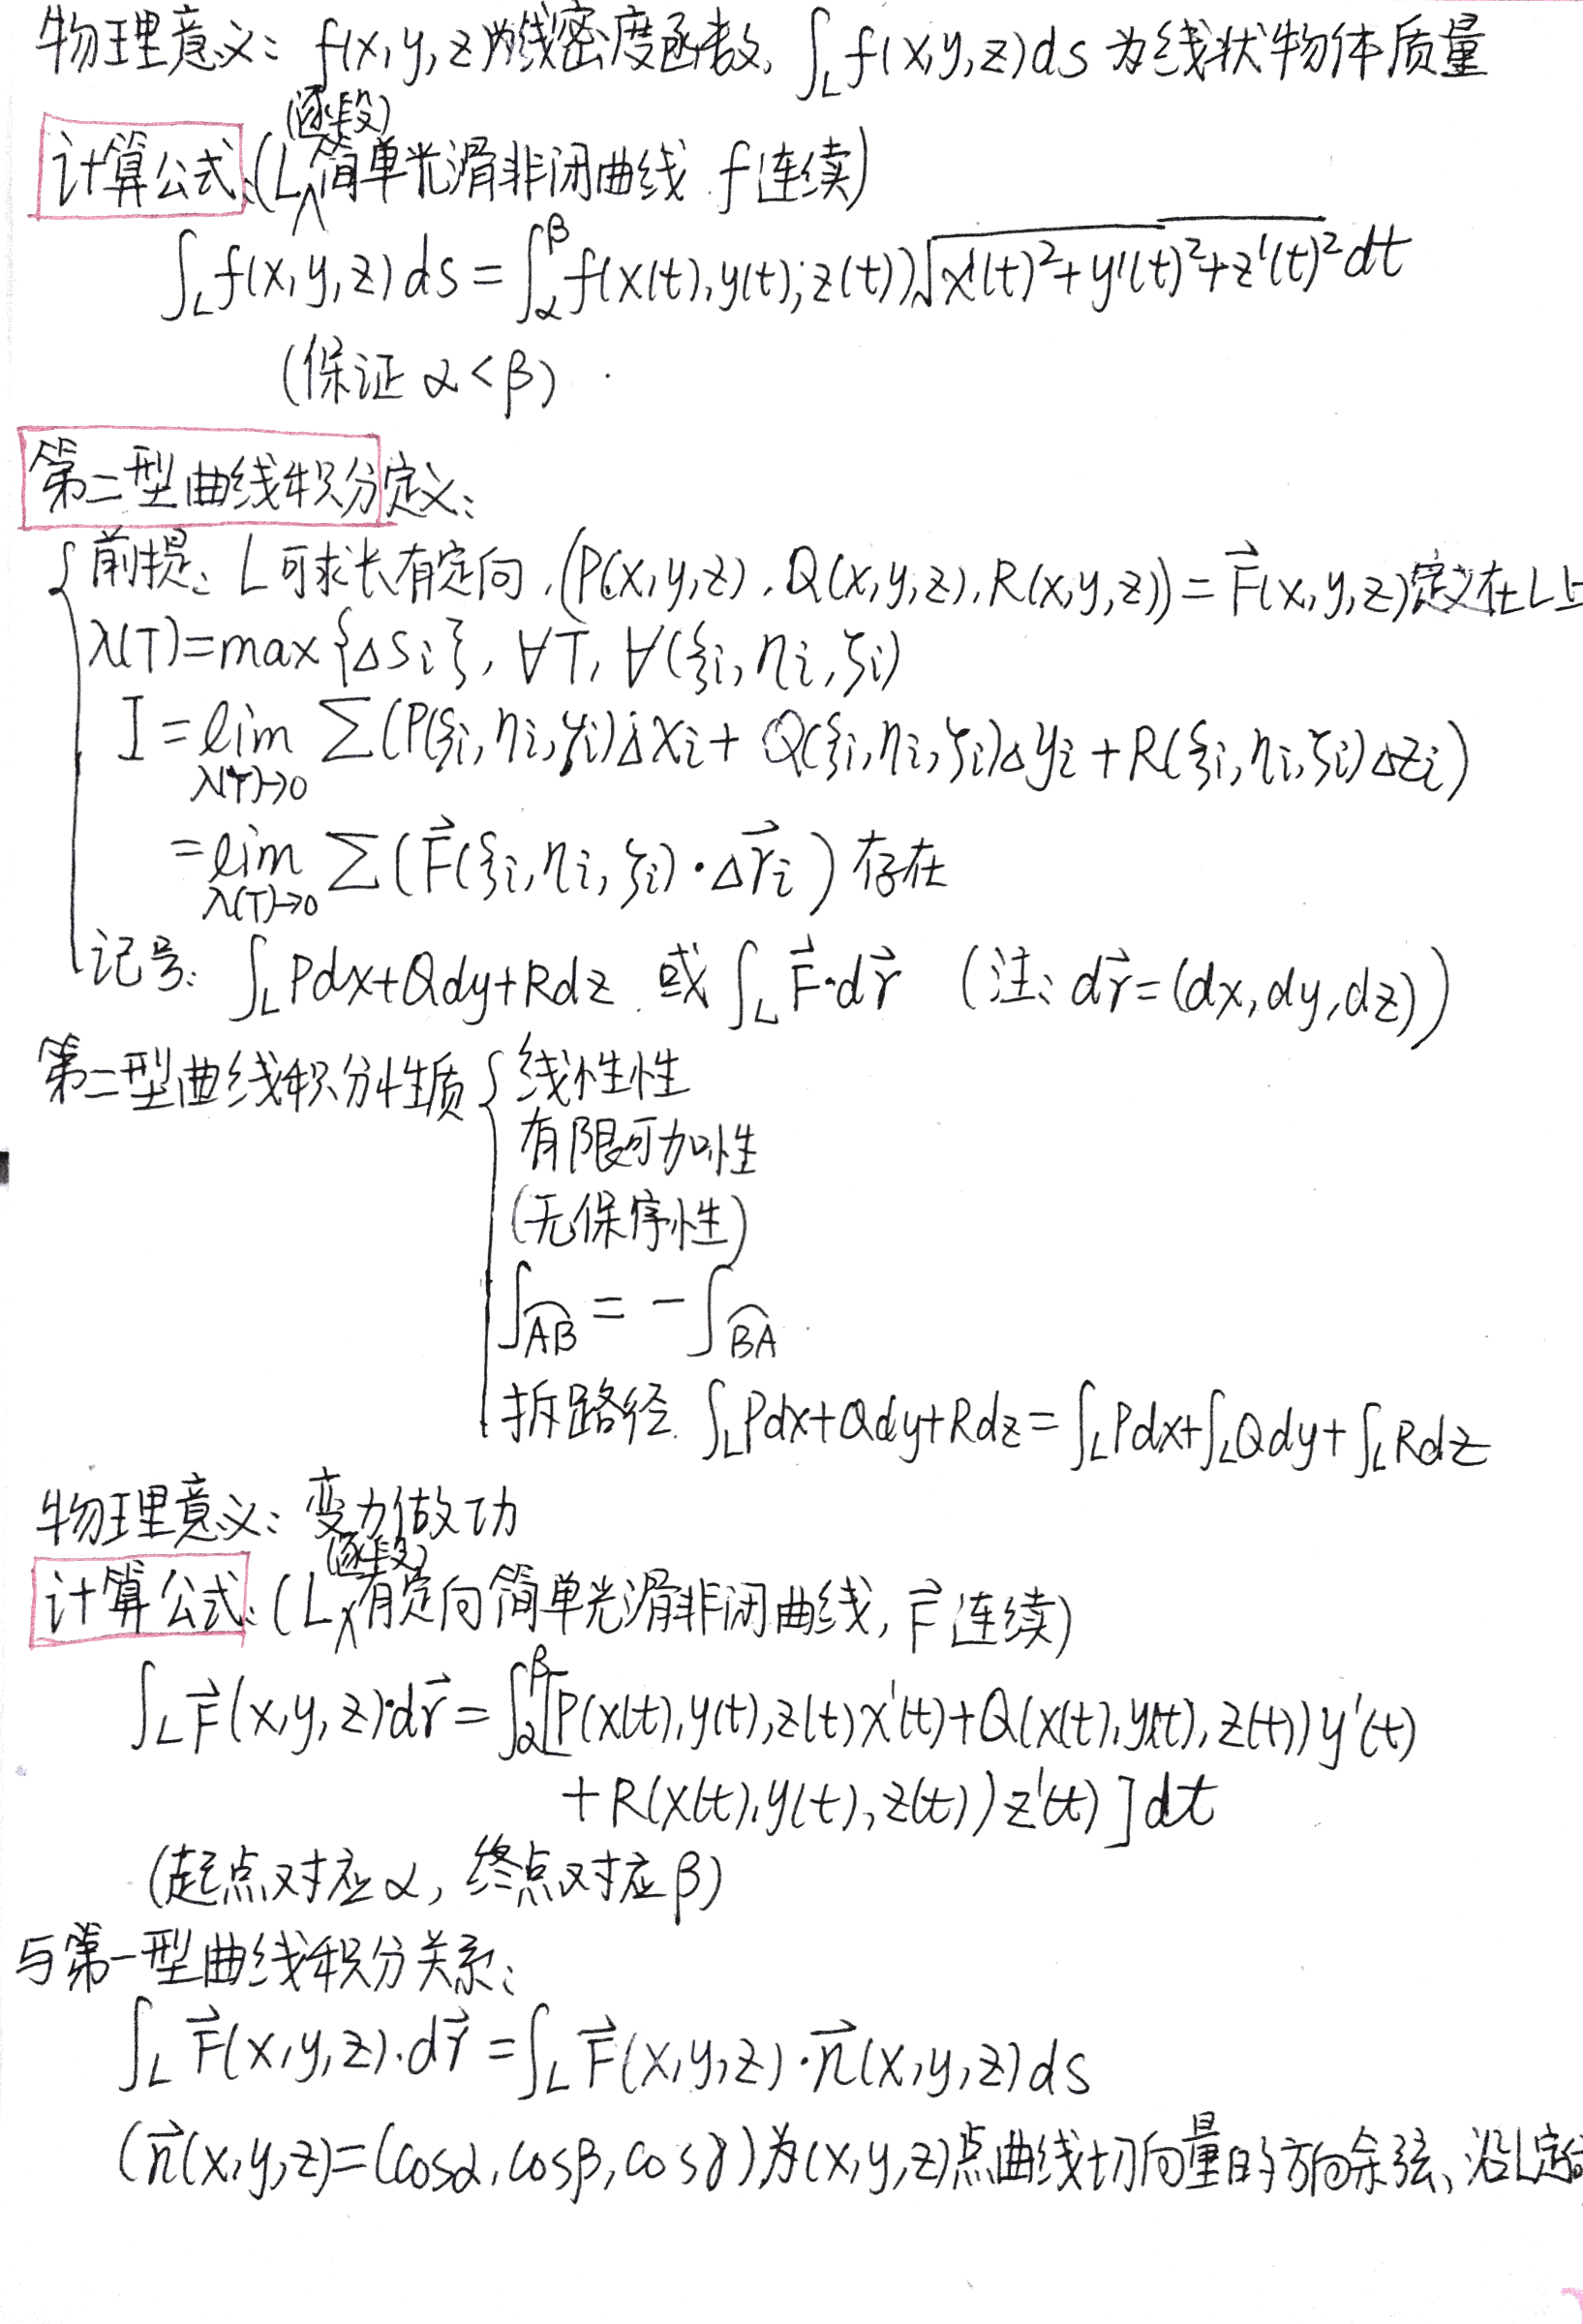 物理意义: f(x,y,z)为线密度函数, ∫_L f(x,y,z)ds 为线状物体质量
计算公式: (L(逐段)简单光滑非闭曲线 f连续)
∫_L f(x,y,z)ds = ∫_α^β f(x(t),y(t),z(t))√(x'(t)²+y'(t)²+z'(t)²) dt
(保证 α<β)
第二型曲线积分定义:
前提: L可求长有定向, (P(x,y,z), Q(x,y,z), R(x,y,z)) = F⃗(x,y,z)定义在L上
λ(T)=max{Δsi}, ∀T, ∀(ξi,ηi,ζi)
I = lim_{λ(T)→0} Σ(P(ξi,ηi,ζi)Δxi + Q(ξi,ηi,ζi)Δyi + R(ξi,ηi,ζi)Δzi)
= lim_{λ(T)→0} Σ(F⃗(ξi,ηi,ζi)·Δr⃗i) 存在
记号: ∫_L Pdx+Qdy+Rdz 或 ∫_L F⃗·dr⃗ (注: dr⃗=(dx,dy,dz))
第二型曲线积分性质 线性性
有限可加性
(无保序性)
∫_{AB⌢} = -∫_{BA⌢}
拆路径 ∫_L Pdx+Qdy+Rdz = ∫_L Pdx+∫_L Qdy+∫_L Rdz
物理意义: 变力做功
计算公式: (L(逐段)有定向简单光滑非闭曲线, F⃗连续)
∫_L F⃗(x,y,z)·dr⃗ = ∫_α^β [P(x(t),y(t),z(t)x'(t)+Q(x(t),y(t),z(t))y'(t)
+R(x(t),y(t),z(t))z'(t)]dt
(起点对应α, 终点对应β)
与第一型曲线积分关系:
∫_L F⃗(x,y,z)·dr⃗ = ∫_L F⃗(x,y,z)·n⃗(x,y,z)ds
(n⃗(x,y,z)=(cosα,cosβ,cosγ)为(x,y,z)点曲线切向量的方向余弦、沿L定